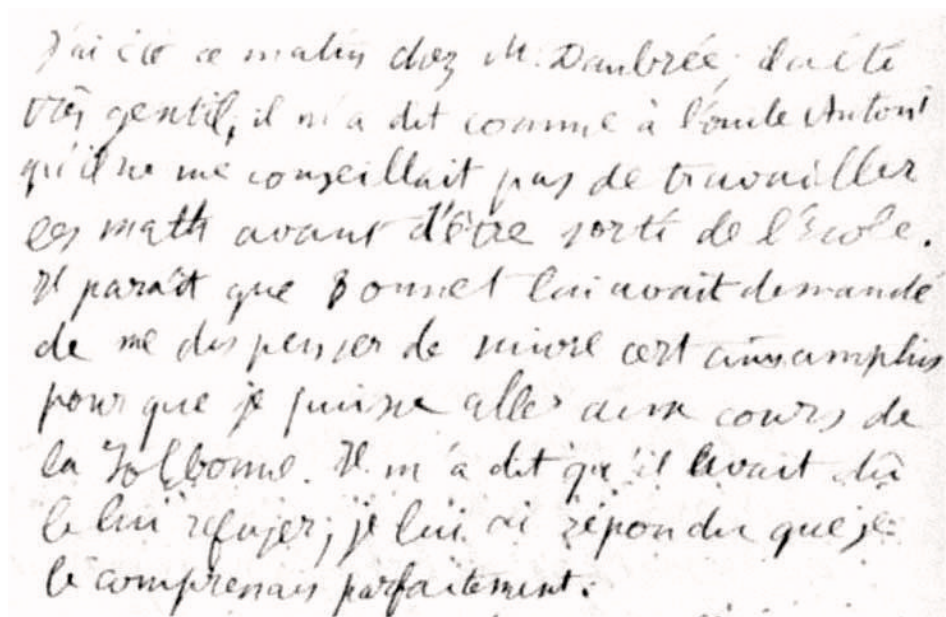 J'ai été ce matin chez M. Daubrée; il a été
très gentil, il m'a dit comme à l'oncle Antoni
qu'il ne me conseillait pas de travailler
les math avant d'être sorti de l'École.
Il paraît que Bonnet lui avait demandé
de me dispenser de suivre certains amphis
pour que je puisse aller aux cours de
la Sorbonne. Il m'a dit qu'il avait dû
le lui refuser; je lui ai répondu que je
le comprenais parfaitement.